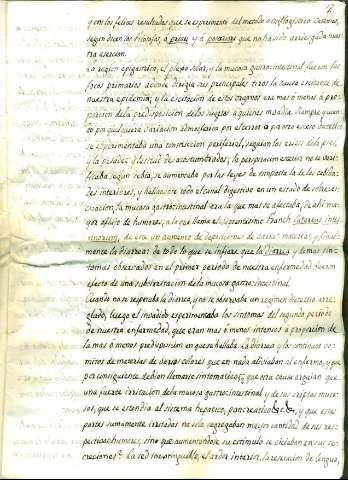 2.
y con los felices resultados que se experimentó del metodo antiflogistico severo,
segun dicen los filosofos, á priori y á posteriori que no ha sido arriesgada nues-
tra asercion.
La region epigastrica, el plexo solar, y la mucosa gastrointestinal fueron los
focos primarios adonde dirigia sus principales tiros la causa excitante de
nuestra epidemia; y la excitacion de estos organos era mas ó menos á pro-
porcion de la predisposicion de los sugetos á quienes invadia. Siempre y cuan-
do por qualquiera variacion admosferica por el terror ó por otro exceso dietetico
se experimentaba una constriccion periferial, seguian los crisis de la piel
y la perdida ó destruido de acostumbrados, la perspiracion execrin no se veri-
ficaba, ó quien rebia, se aumentaba por las leyes de simpatia la de las cabida-
des interiores, y hallandose todo el canal digestivo en un estado de sobreex-
citacion, la mucosa gastrointestinal era la que mas se afectaba; de ahí ma-
yor aflujo de humores, á lo que llama el sapientisimo Franch Catarrus intes-
tinorum, de esto un aumento de deposiciones de varias materias, y final-
mente la diarrea: de todo lo que se infiere que la diarrea y demas sin-
tomas observados en el primer periodo de nuestra enfermedad fueron
efecto de una subirritacion de la mucosa gastrointestinal.
Cuando no se reparaba la diarrea, y no se observaba un regimen dietetico arre-
glado, luego el invadido experimentaba los sintomas del segundo periodo
de nuestra enfermedad, que eran mas ó menos intensos á proporcion de
la mas ó menos predisposicion en que se hallaba. La diarrea y los continuos vo-
mitos de materias de varios colores que en nada aliviaban al enfermo, y que
por consiguiente debian llamarse sintomaticos, que otra causa arguian que
una fuerte irritacion de la mucosa gastrointestinal y de sus criptas muco-
sos, que se estendia al sistema hepatico, pancreatico &c &c, y que estas
partes sumamente irritadas no solo segregaban mayor cantidad de sus res-
pectivos humores, sino que aumentandose su estimulo se viciaban en sus se-
creciones? la sed inextinguible, el ardor interior, la resecacion de lengua,